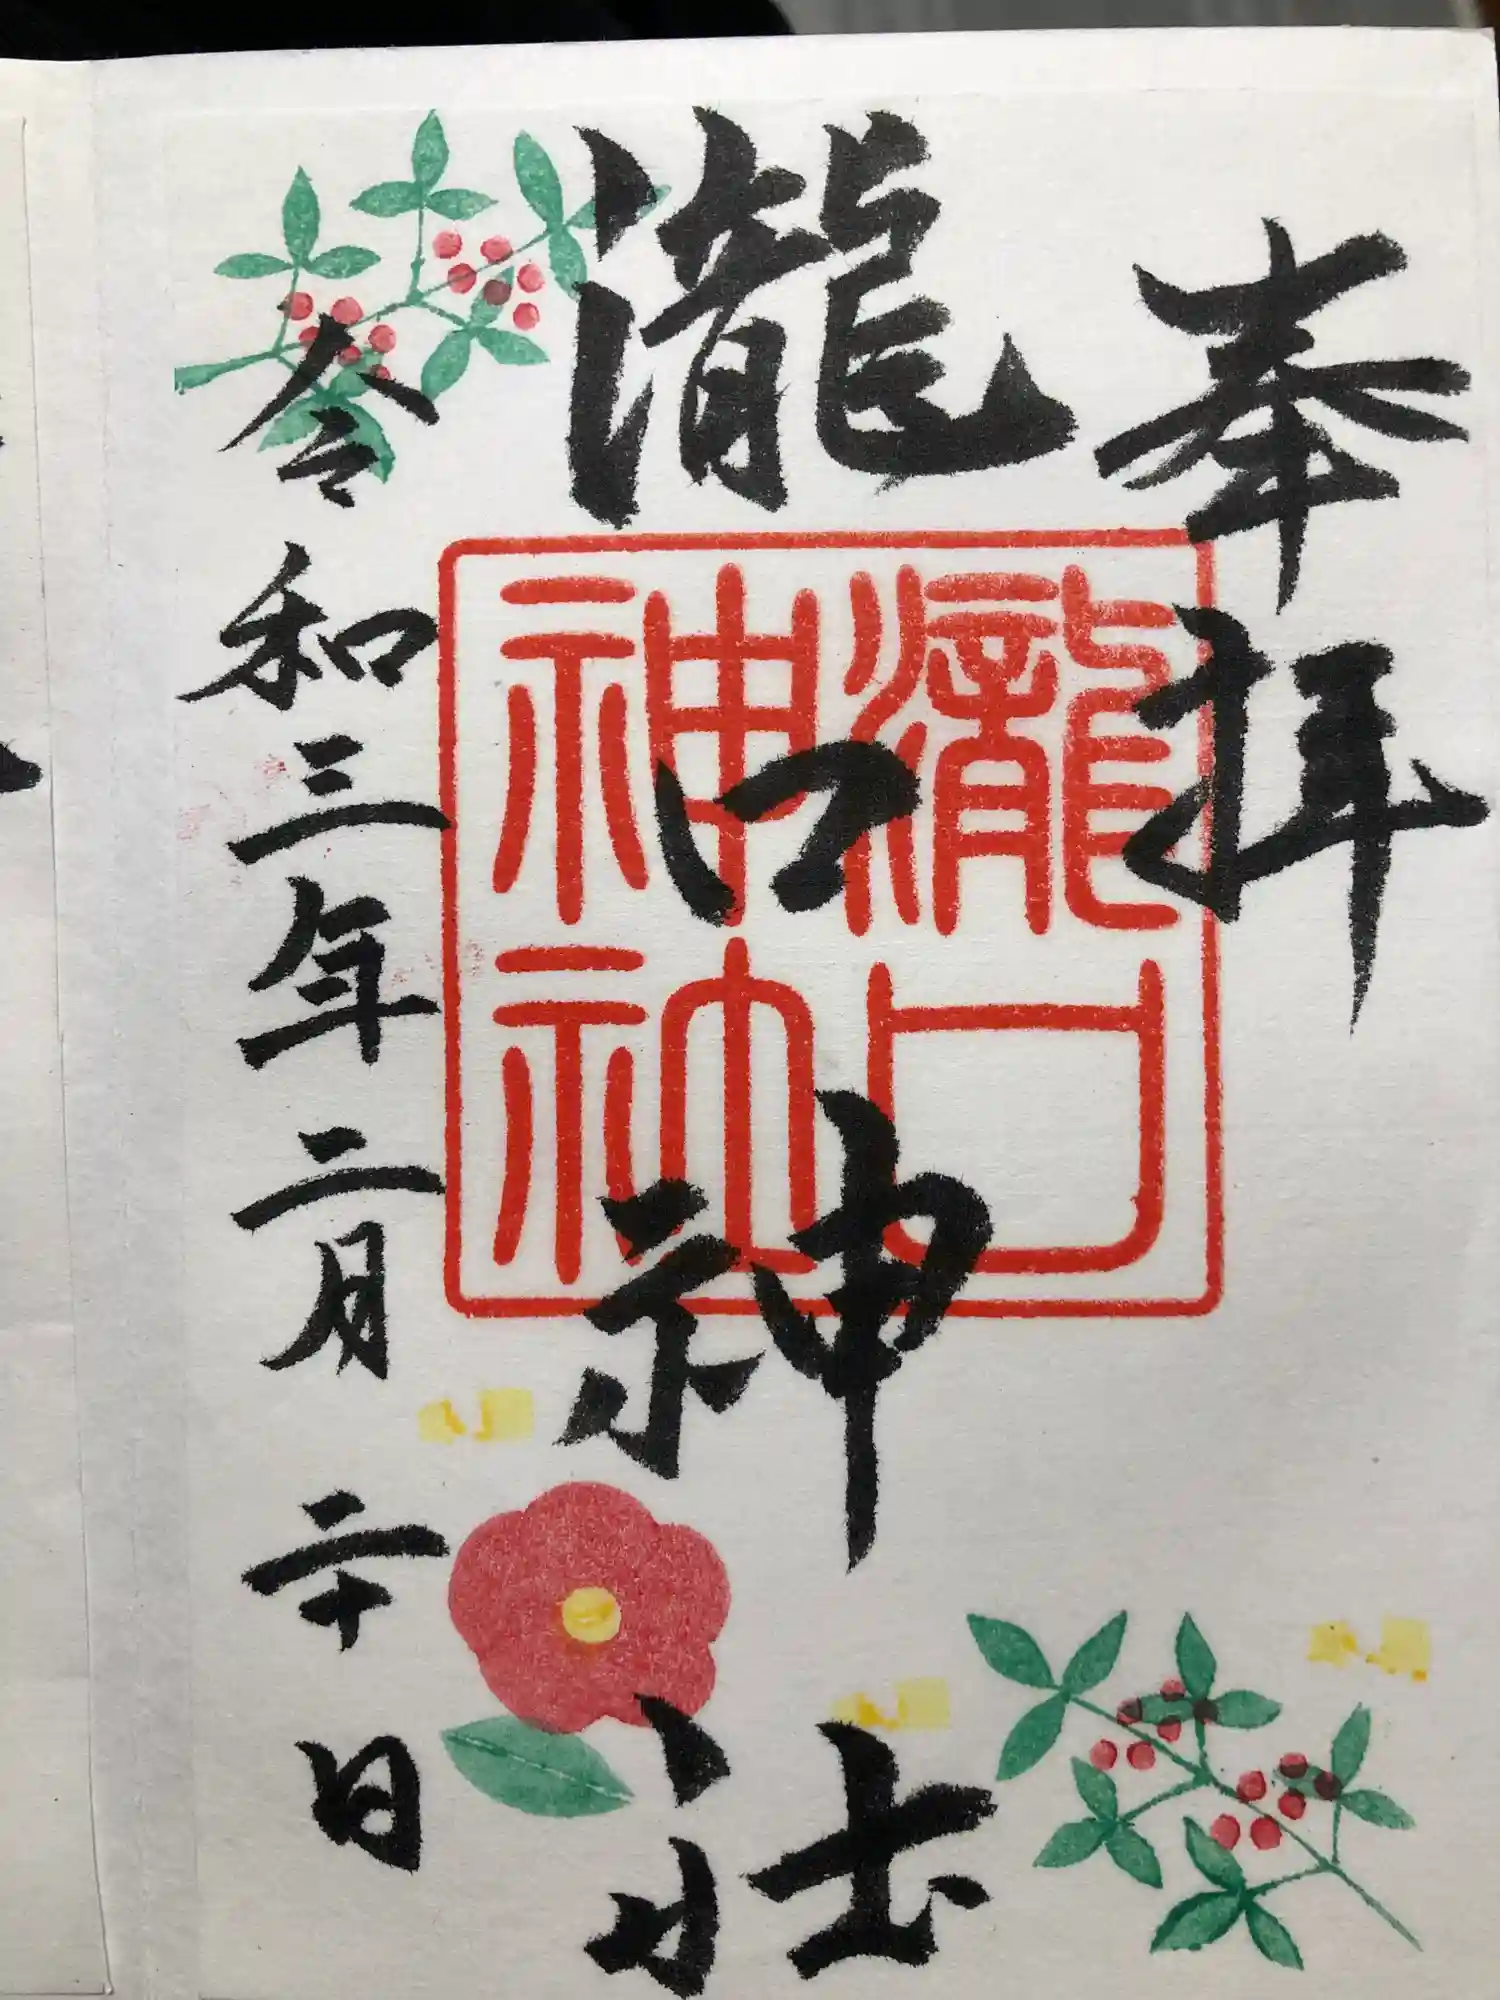 奉拝
瀧口神社
令和三年二月二十日
瀧口
神社